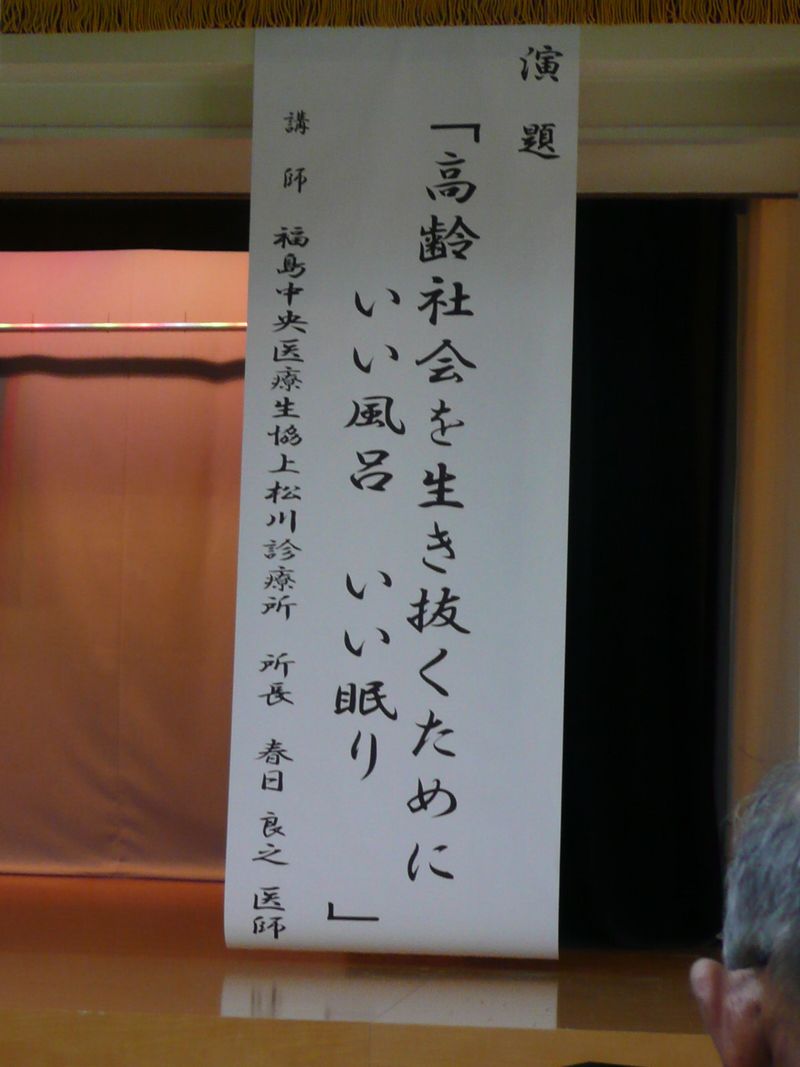 演題
「高齢社会を生き抜くために
いい風呂 いい眠り」
講師 福島中央医療生協上松川診療所 所長 春日 良之 医師